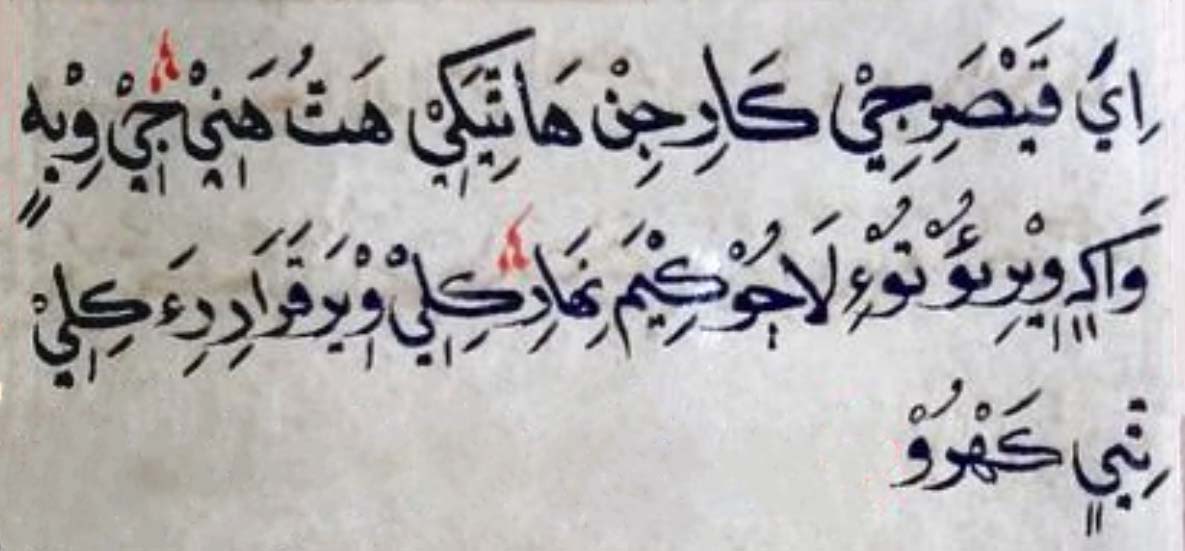 اِيُ قَيْصَرِجِيْ كَارِجِنْ هَاتِيَكِيْ هَتُّ هَنِيْ جِيْ وِيْهٍ
وَاكِهٖ وِيْرِئُوْ تُوْءِ لَاجُوْ كِيْمَ نِهَارِ كِلِيْ وْيَرَقَرَارِ دِءَ كِلِيْ
تِيِيٖ كَهْرُوْ